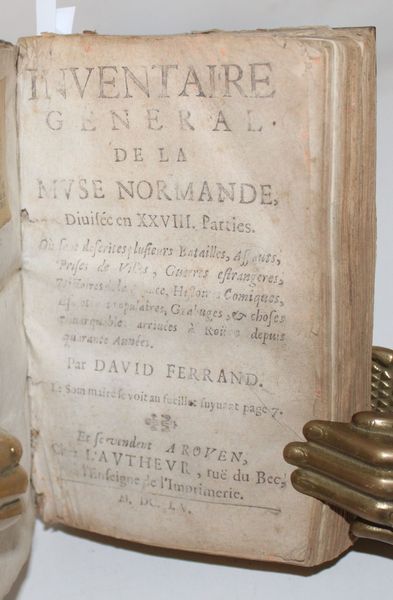 INVENTAIRE
GENERAL.
DE LA
MVSE NORMANDE,
Diuisée en XXVIII. Parties.
Où sont descrites plusieurs Batailles, Assauts,
Prises de Villes, Guerres estrangeres,
Histoires Comiques,
Esmotions populaires, Grabuges, & choses
remarquables arriuées à Roüen depuis
quarante Années.
Par DAVID FERRAND.
Le Sommaire se voit au fueillet suyuant page 7.
Et se vendent A ROVEN,
Chez L'AVTHEVR, ruë du Bec,
à l'Enseigne de l'Imprimerie.
M. DC. LV.